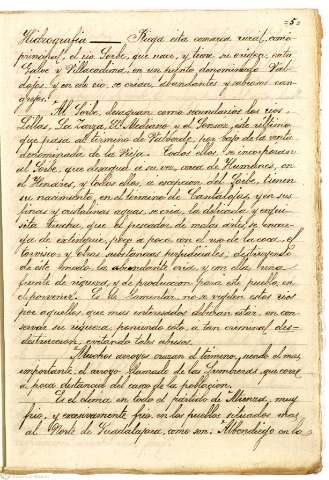 -5-
Hidrografia — Riega esta comarca rural, como
principal, el rio Sorbe, que nace, y tiene su origen, entre
Galve y Villacadima, en un sitio denominado Val-
dojos, y en este rio, se crian abundantes y sabrosos can-
grejos.
Al Sorbe, desaguan como secundarios los rios
Lillas, La Zarza, El Mediano y el Sonsaz, este ultimo
que pasa al termino de Valverde, por bajo de la venta
denominada de la Vieja. Todos ellos, se incorporan
al Sorbe, que desagua a su vez, cerca de Humanes, en
el Henares, y todos ellos, a excepcion del Sorbe, tienen
su nacimiento, en el termino de Cantalojas, y en sus
finas y cristalinas aguas, se cria, la delicada y exqui-
sita trucha, que el pescador de malas artes, se encar-
ga de extinguir, poco a poco, con el uso de la coca, el
torvisco y otras substancias perjudiciales; destruyendo
de este modo, la abundante cria, y con ella, una
fuente de riqueza, y de produccion, para este pueblo, en
el porvenir. Es de lamentar, no se vigilen estos rios
por aquellos, que mas interesados debieran estar, en con-
servar su riqueza, poniendo coto, a tan criminal des-
destruccion, y evitando tales abusos.
Muchos arroyos cruzan el termino, siendo el mas
importante, el arroyo, llamado de las Lumbreras, que corre
a poca distancia del casco de la poblacion.
Es el clima en todo el partido de Atienza, muy
frio, y excesivamente frio, en los pueblos situados mas
al Norte de Guadalajara, como son: Albendiego en la